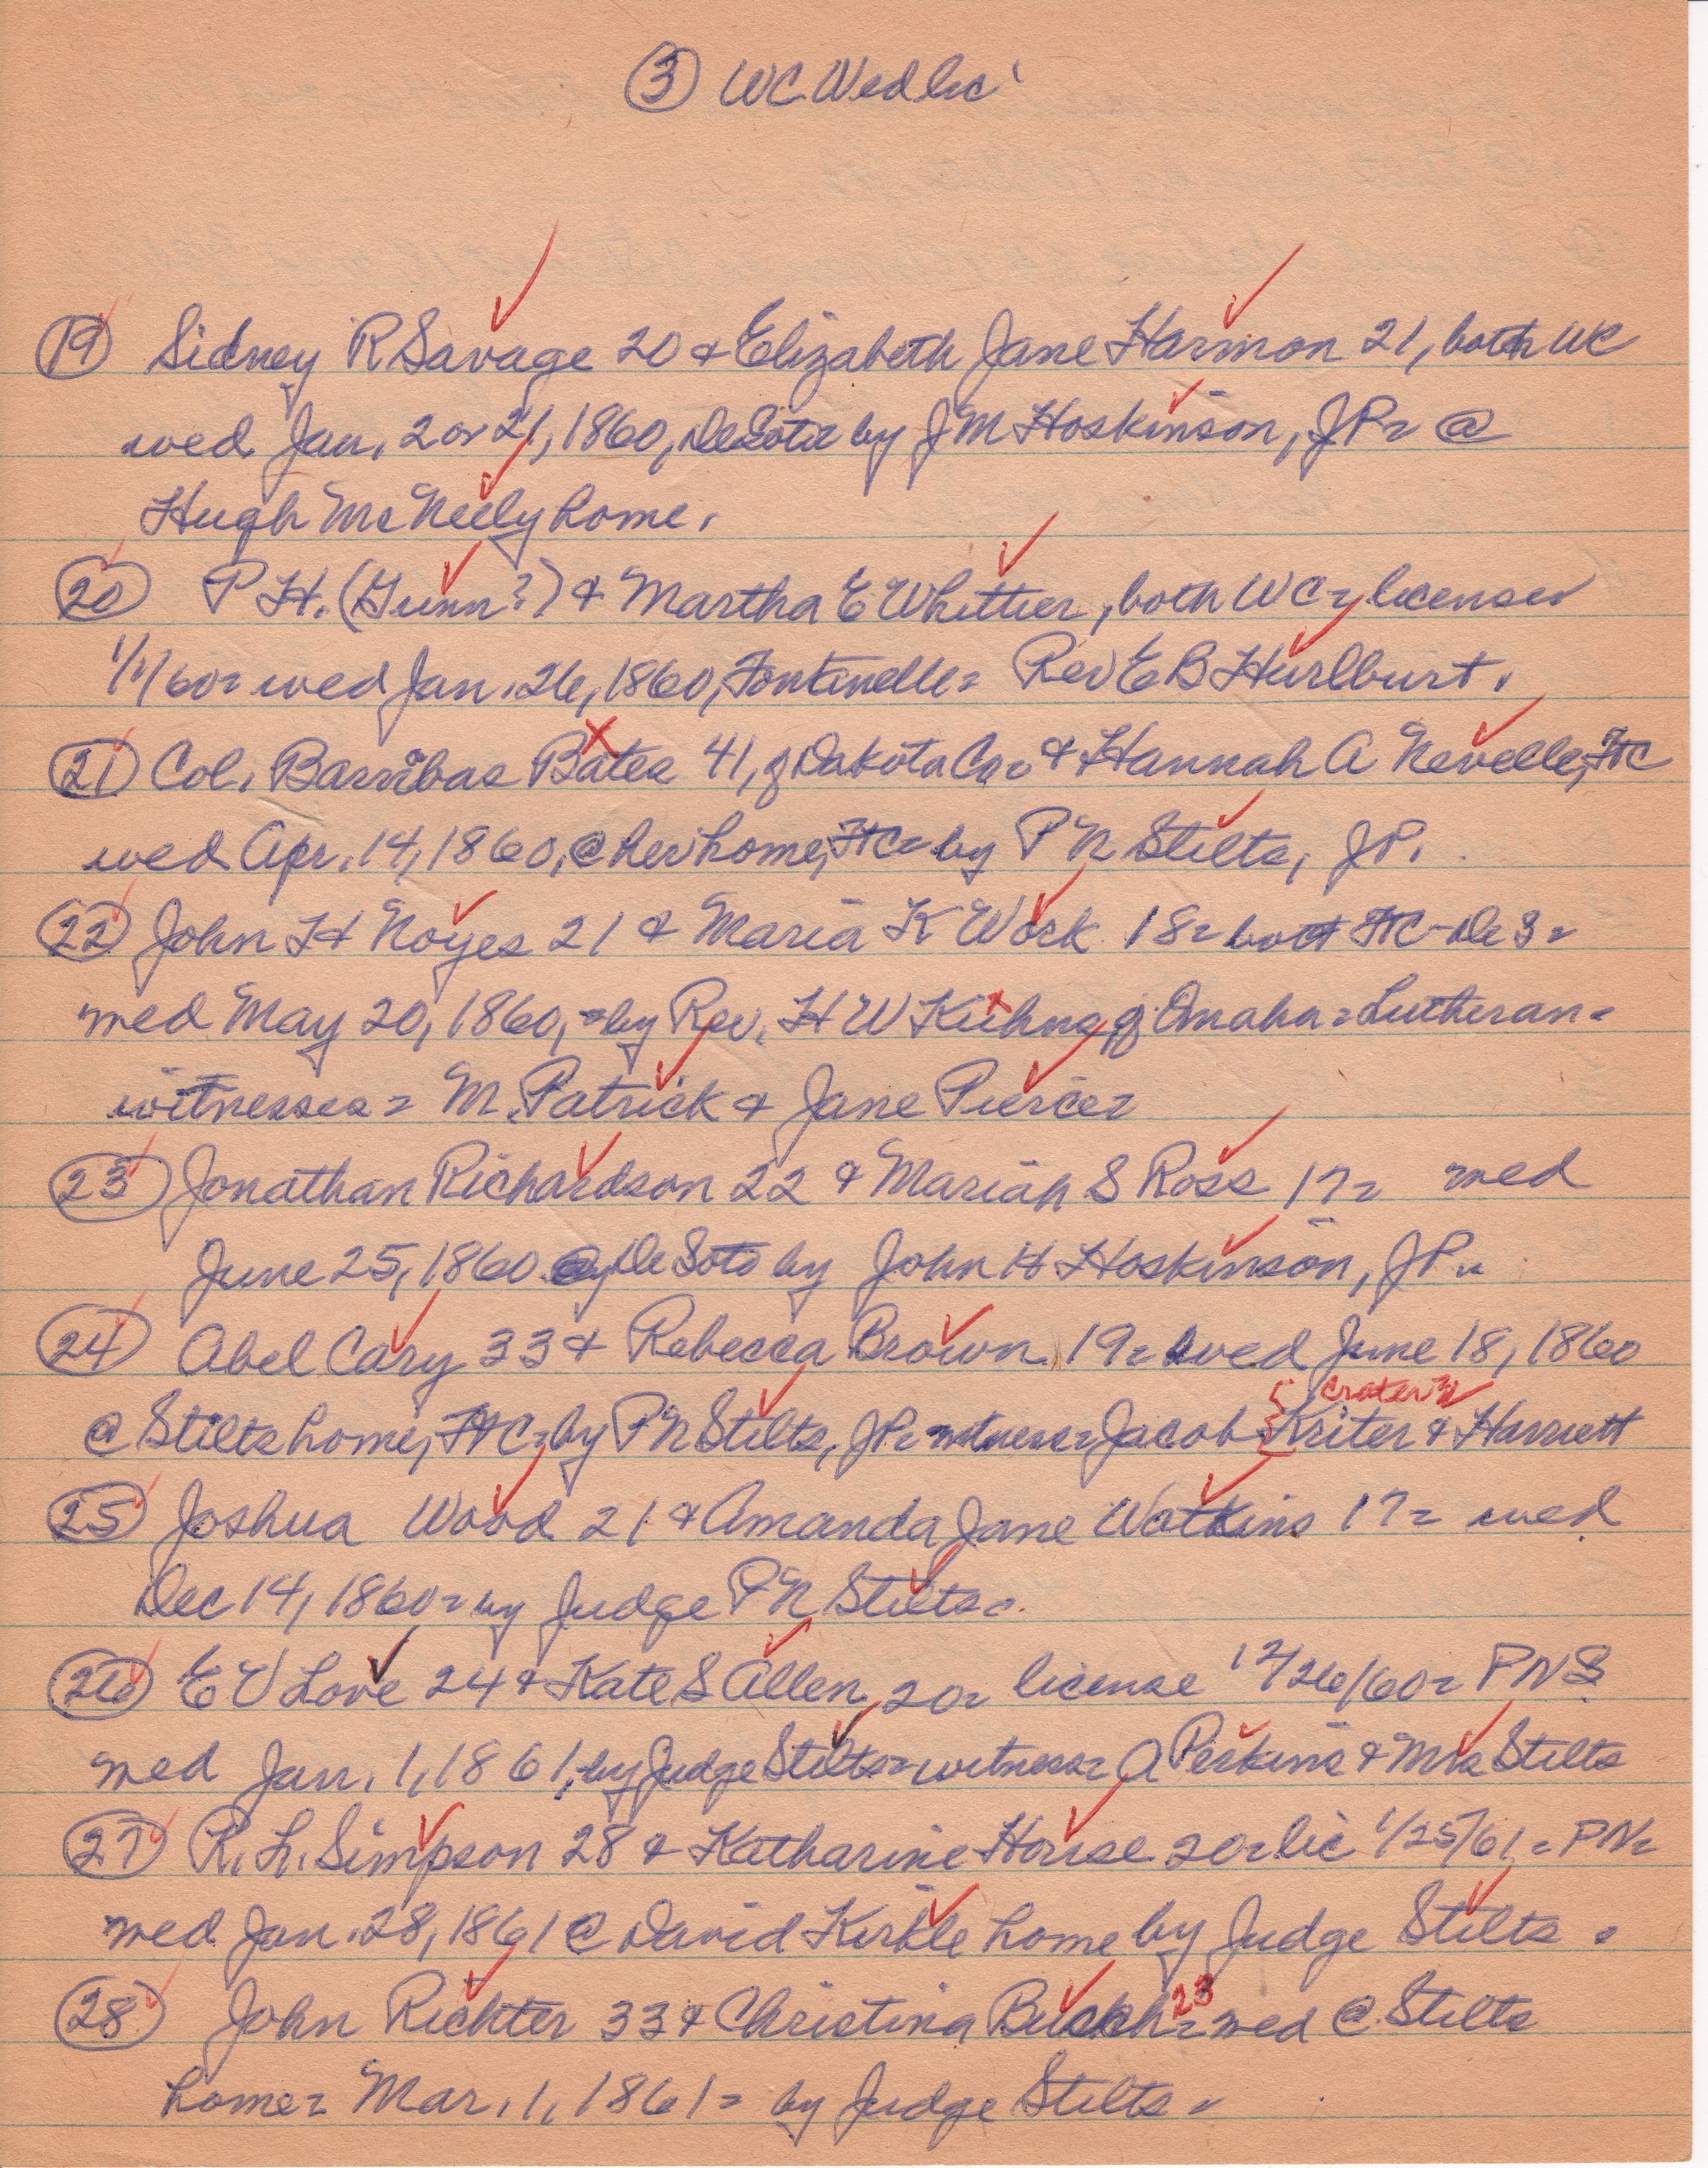 ③ WC Wed Lic
19 Sidney R Savage 20 & Elizabeth Jane Harmon 21, both WC
wed Jan. 2 or 21, 1860, DeSoto by J M Hoskinson, JP= @
Hugh McNeely home.
20 P H. (Gunn?) & Martha E Whittier, both WC= license
1/1/60= wed Jan. 26, 1860, Fontinelle= Rev E B Hurlburt.
21 Col. Barribas Bates 41, of Dakota Co= & Hannah A Nevelle, FtC
wed Apr. 14, 1860, @ her home, FtC= by P N Stilts, JP.
22 John H Noyes 21 & Maria K Work 18= both FtC-De S=
wed May 20, 1860,= by Rev. H W Kuhns, of Omaha= Lutheran=
witnesses= M. Patrick & Jane Pierce=
23 Jonathan Richardson 22 & Mariah S Ross 17= wed
June 25, 1860 @ DeSoto by John H Hoskinson, JP=
24 Abel Cary 33 & Rebecca Brown 19= wed June 18, 1860
Crater
@ Stilts home, FtC= by PN Stilts, JP= witness= Jacob Kriter & Harriett
25 Joshua Wood 21 & Amanda Jane Watkins 17= wed
Dec 14, 1860= by Judge PN Stilts=.
26 E V Love 24 & Kate S Allen, 20= license 12/26/60= PNS
wed Jan. 1, 1861, by Judge Stilts= witness= A Perkins & Mrs Stilts
27 R. L. Simpson 28 & Katharine House 20= lic 1/25/61= PN=
wed Jan. 28, 1861 @ David Kirkle home by Judge Stilts.
28 John Richter 33 & Christina 23= wed @ Stilts
home= Mar. 1, 1861= by Judge Stilts=